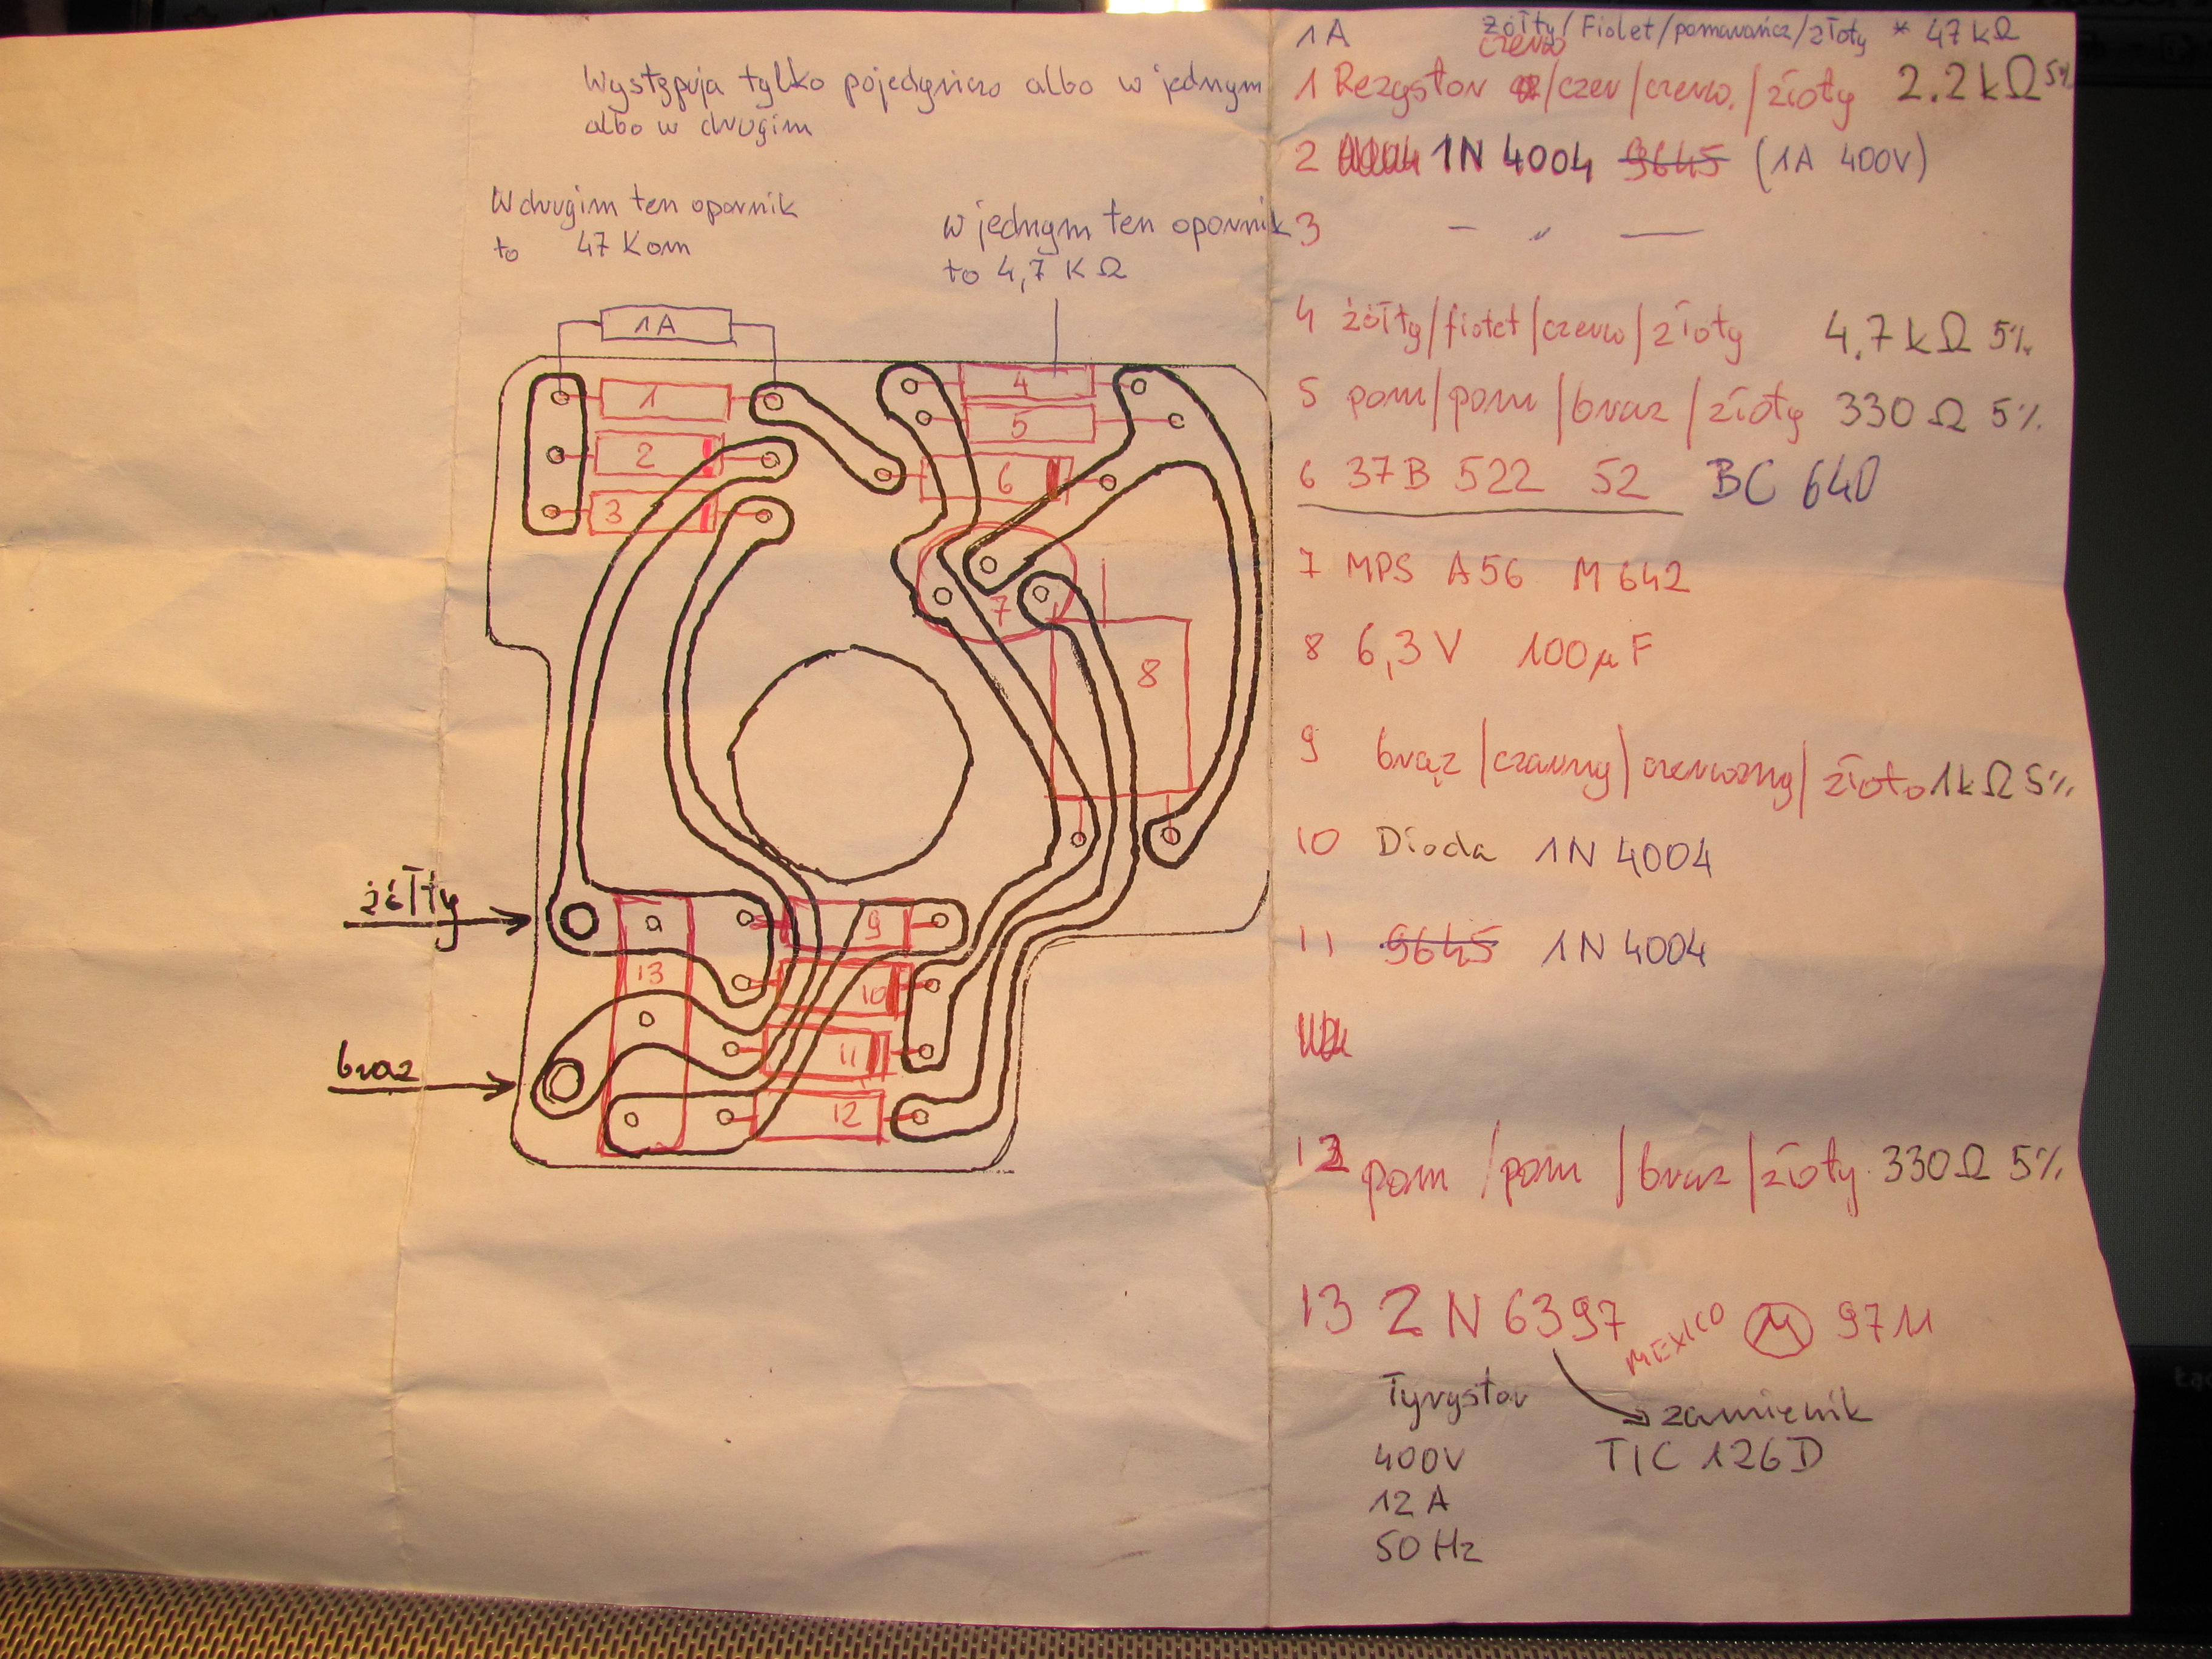 Występują tylko pojedyńczo albo w jednym
albo w drugim
W drugim ten opornik
to 47 Kom
w jednym ten opornik
to 4,7 K Ω
1A
1
2
3
4
5
6
7
8
żółty
braz
a
13
9
10
11
12
1A żółty/Fiolet/pomarańcz/złoty * 47kΩ
czerw
1 Rezystor /czer/czerw./złoty 2.2kΩ 5%
2 1N 4004 9645 (1A 400V)
3 — " —
4 żółty/fiolet/czerw/złoty 4.7kΩ 5%
5 pom/pom/braz/złoty 330Ω 5%
6 37B 522 52 BC 640
7 MPS A56 M642
8 6,3V 100µF
9 brąz/czarny/czerwony/złoto 1kΩ 5%
10 Dioda 1N 4004
11 9645 1N 4004
12 pom/pom/braz/złoty. 330Ω 5%
13 2N6397 MEXICO M 9711
Tyrystor
zamienik
400V
TIC 126D
12A
50Hz